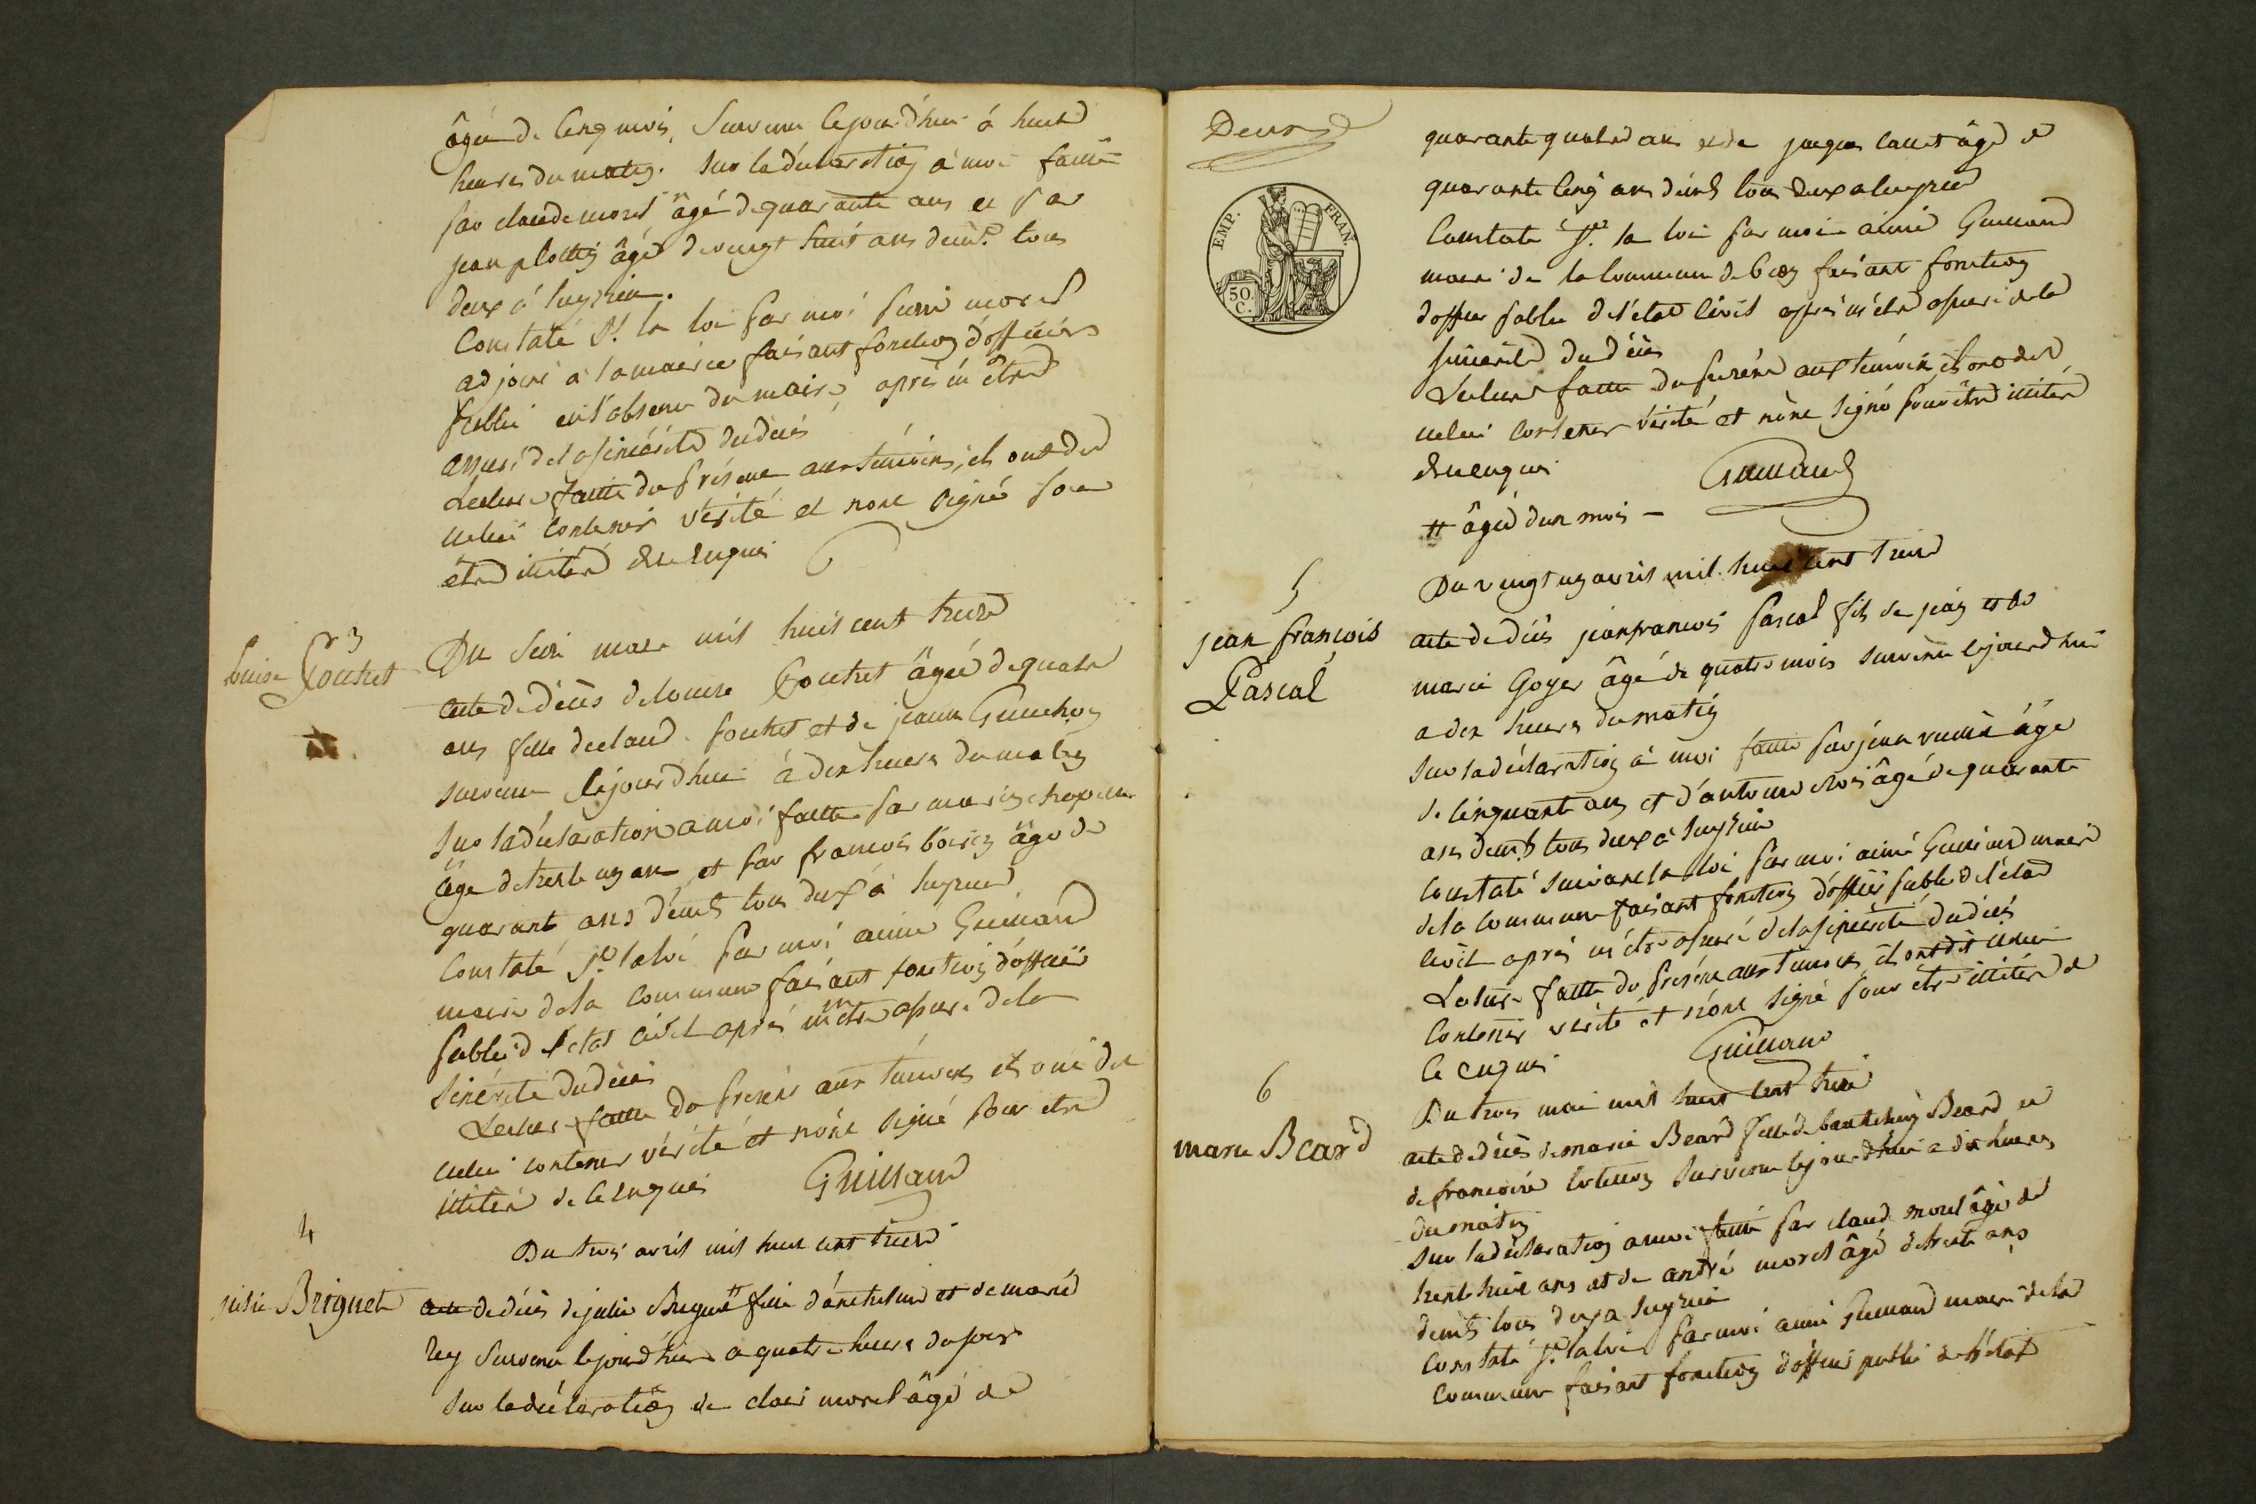 âgée de cinq mois, survenu cejourd'hui à huit
heures du matin. sur la déclaration à moi faitte
par claude morel âgé de quarante ans et par
jean âgé de vingt huit ans tous
deux à
Constaté pt la loi par moi morel
adjoint à la mairie faisant fonction d'officier
public en l'absence du maire, après m'être
assuré de la sincérité du décès
Lecture faitte du présent aux témoins, ils ont dit
icelui contenir vérité et n'ont signé pour
être illitéré de ce enquis
3
Louise Poutret
Du seize mars mil huit cent treize
acte de décès de Louise Poutret âgée de quatre
ans fille de claude Poutret et de jeanne
survenu cejourd'hui à dix heures du matin
sur la déclaration a moi faitte par
âgé de trente un ans et par françois âgé de
quarante ans tous deux à
Constaté pt la loi par moi aimé Guillaud
maire de la commune faisant fonction d'officier
public de l'état civil après m'être assuré de la
sincérité du décès
Lecture faitte du présent aux témoins ils ont dit
icelui contenir vérité et n'ont signé pour être
illitéré de ce enquis Guillaud
4
julie Briguet
Du trois avril mil huit cent treize
acte de décès de julie Briguet # fille d'anthelme et de marie
Rey survenu cejourd'hui a quatre heures du soir
sur la déclaration de morel âgé de
Deux
EMP. FRAN.
50. C.
quarante quatre ans et de jacques âgé de
quarante cinq ans tous deux a
Constaté pt la loi par moi aimé Guillaud
maire de la commune de faisant fonction
d'officier public de l'état civil après m'être assuré de la
sincérité du décès
Lecture faitte du présent aux témoins ils ont dit
icelui contenir vérité et n'ont signé pour être illitéré
de ce enquis Guillaud
# âgée d'un mois —
5
jean françois
Pascal
Du vingt un avril mil huit cent treize
acte de décès jean francois Pascal fils de jean et de
marie Goyer âgé de quatre mois survenu cejourd'hui
a dix heures du matin
sur la déclaration à moi faitte par jean âgé
de cinquante ans et d'antoine âgé de quarante
ans tous deux à
Constaté suivant la loi par moi aimé Guillaud maire
de la commune faisant fonction d'officier public de l'état
civil après m'être assuré de la sincérité du décès
Lecture faitte du présent aux témoins ils ont dit icelui
contenir vérité et n'ont signé pour être illitéré de
ce enquis Guillaud
6
marie Beard
Du trois mai mil huit cent treize
acte de décès de marie Beard fille de Beard et
de françoise survenu cejourd'hui a dix heures
du matin
sur la déclaration a moi faitte par claude morel âgé de
trente huit ans et de andré morel âgé de trente ans
tous deux a
Constaté pt la loi par moi aimé Guillaud maire de la
commune faisant fonction d'officier public de l'état